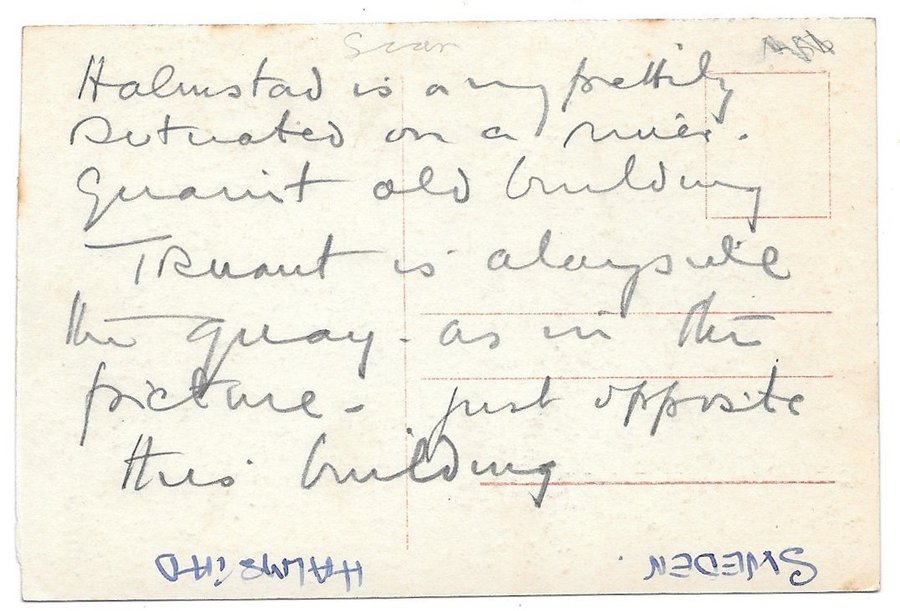 Scan
Halmstad is very prettily
situated on a river.
Quaint old building
Truant is alongside
the quay - as in the
picture - just opposite
this building
HALMSTAD
SWEDEN.